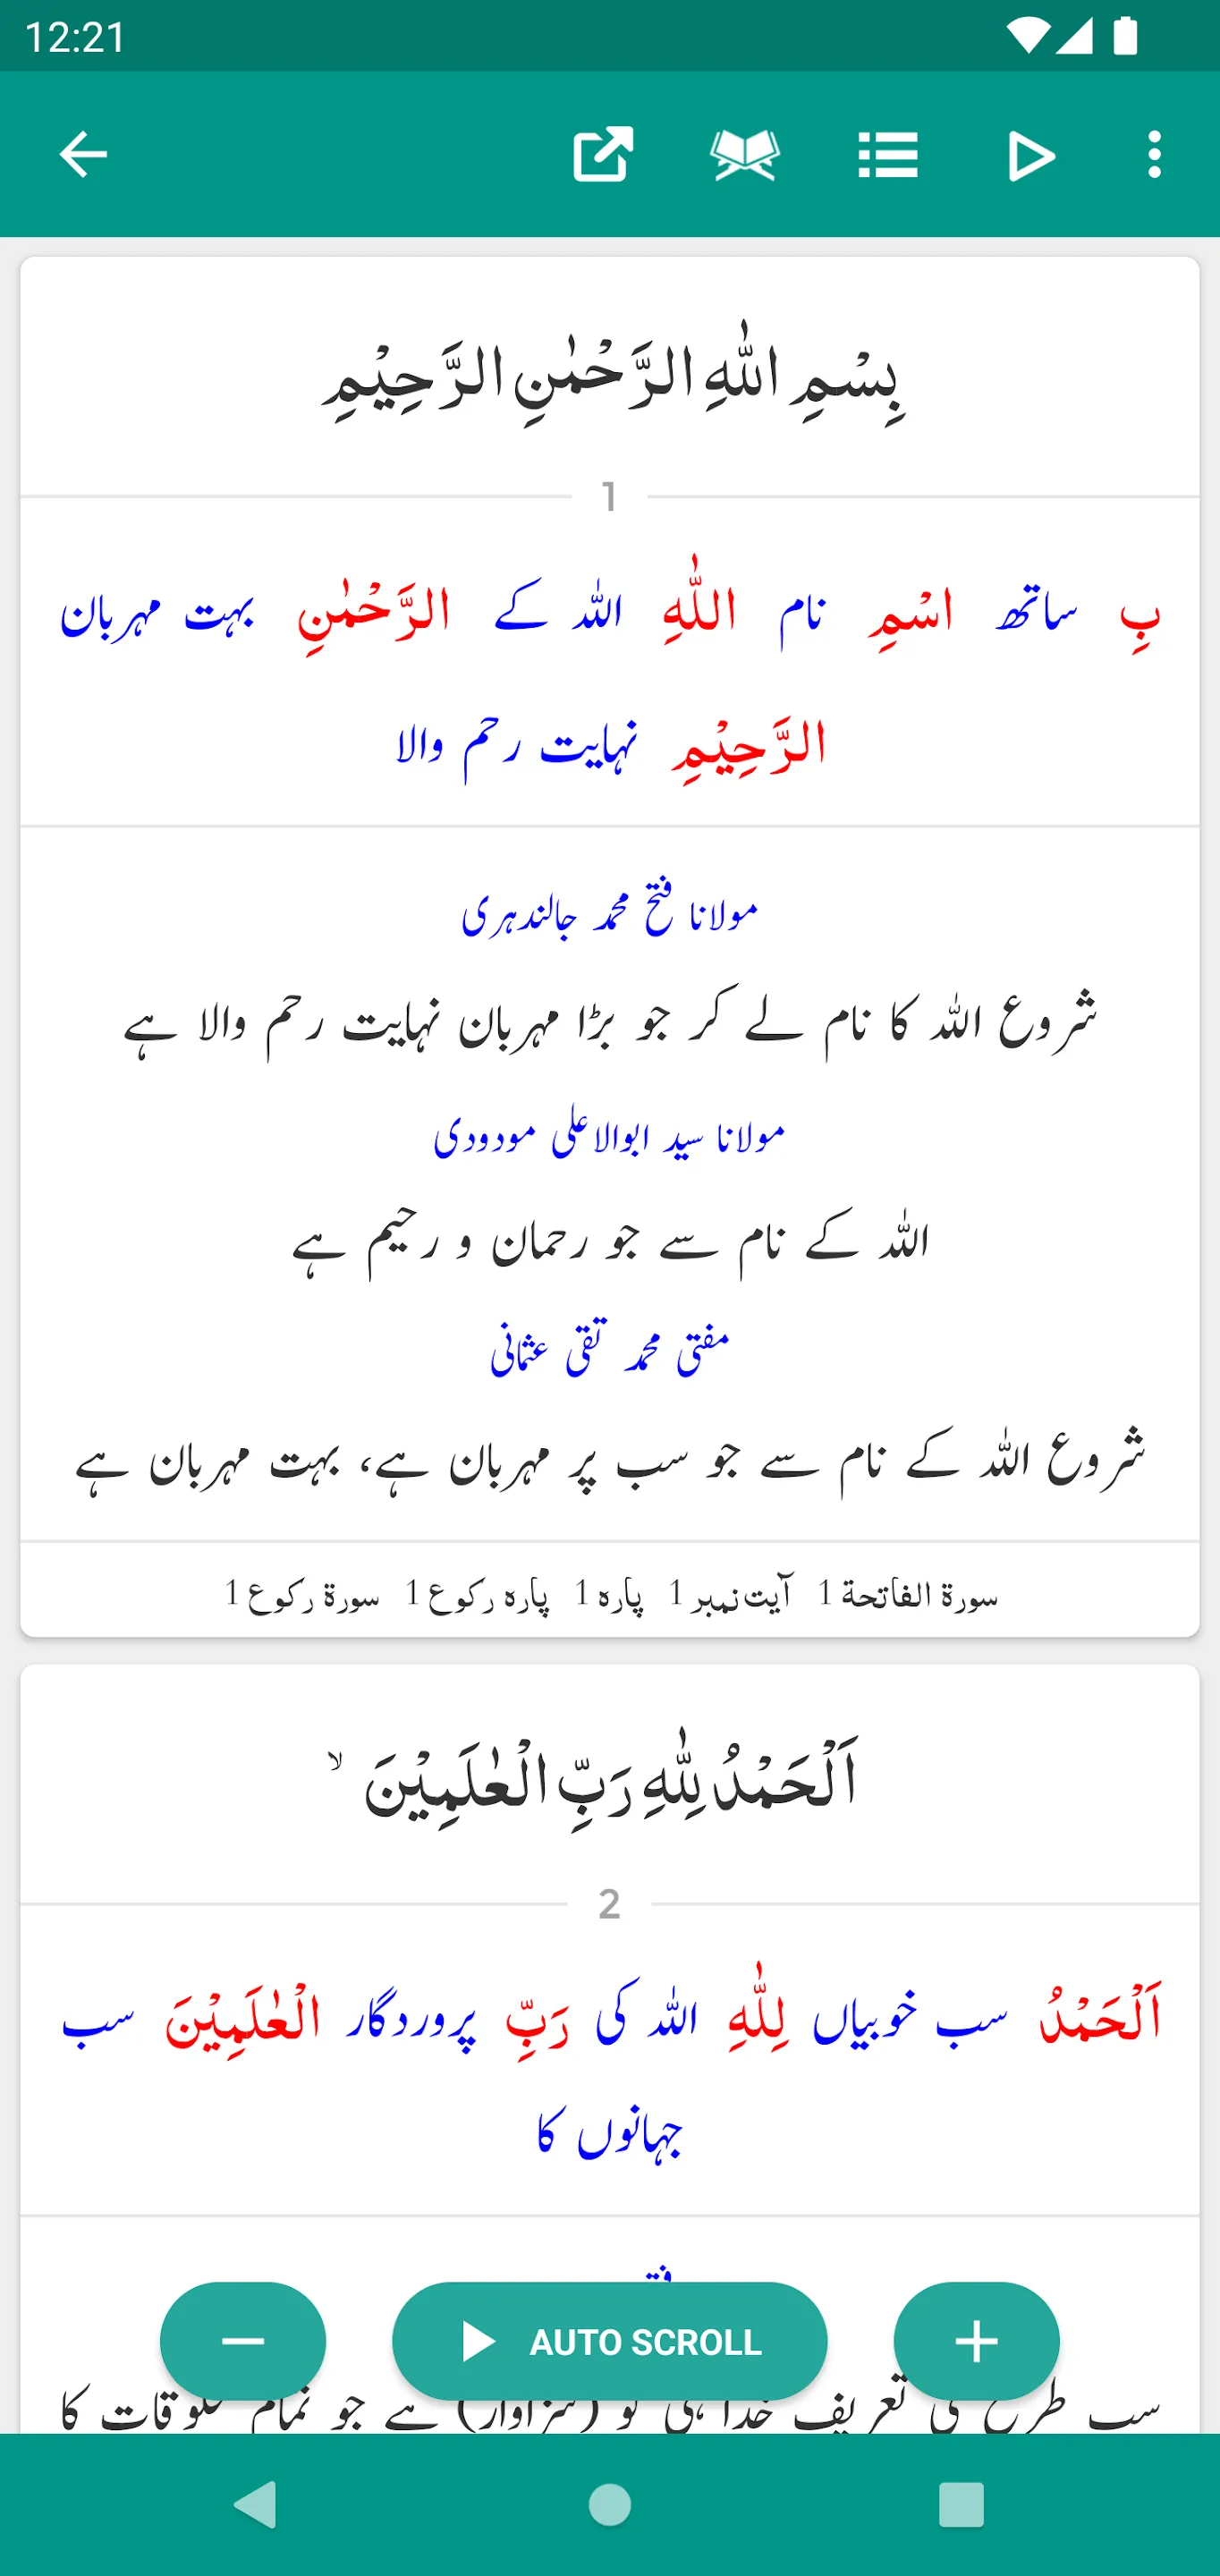 12:21
بِسْمِ اللّٰهِ الرَّحْمٰنِ الرَّحِیْمِ
1
بِ ساتھ اسْمِ نام اللّٰهِ اللہ کے الرَّحْمٰنِ بہت مہربان
الرَّحِیْمِ نہایت رحم والا
مولانا فتح محمد جالندہری
شروع اللہ کا نام لے کر جو بڑا مہربان نہایت رحم والا ہے
مولانا سید ابوالاعلی مودودی
اللہ کے نام سے جو رحمان و رحیم ہے
مفتی محمد تقی عثمانی
شروع اللہ کے نام سے جو سب پر مہربان ہے، بہت مہربان ہے
سورة الفاتحة 1 آیت نمبر 1 پارہ 1 پارہ رکوع 1 سورة رکوع 1
اَلْحَمْدُ لِلّٰهِ رَبِّ الْعٰلَمِیْنَ ۙ
2
اَلْحَمْدُ سب خوبیاں لِلّٰهِ اللہ کی رَبِّ پروردگار الْعٰلَمِیْنَ سب
جہانوں کا
AUTO SCROLL
سب طرح کی تعریف خدا ہی کو (سزاوار) ہے جو تمام مخلوقات کا